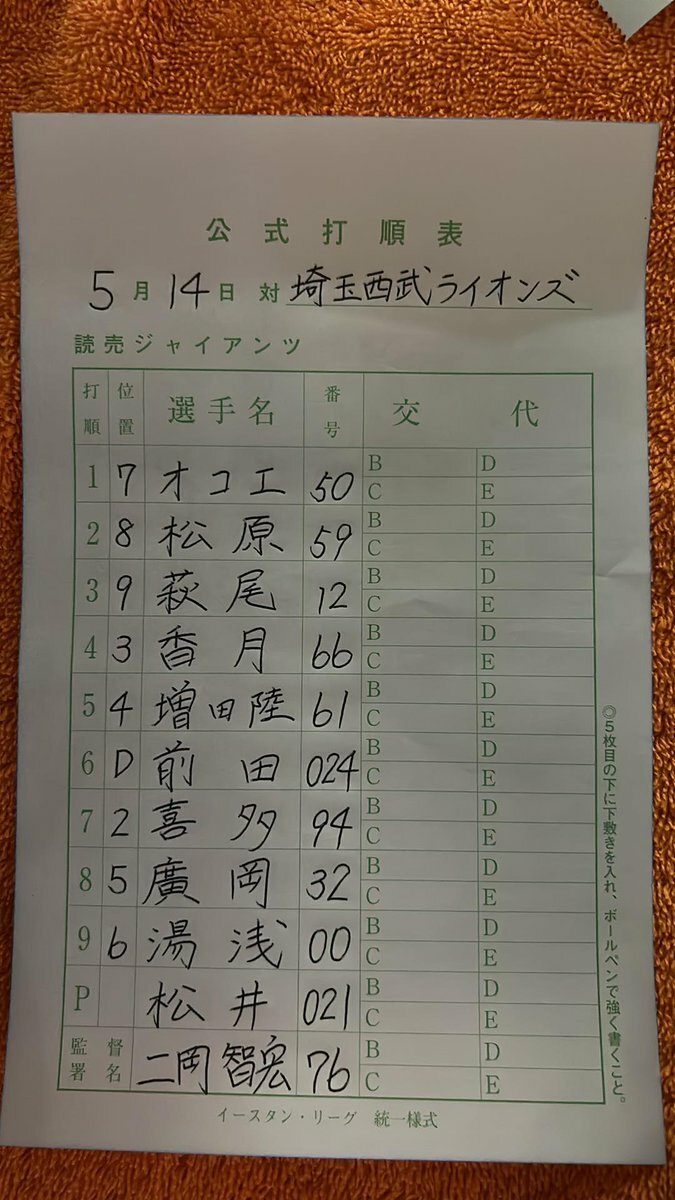 公式打順表
5月14日 対 埼玉西武ライオンズ
読売ジャイアンツ
打順 位置 選手名 番号 交代
1 7 オコエ 50 B D
C E
2 8 松原 59 B D
C E
3 9 萩尾 12 B D
C E
4 3 香月 66 B D
C E
5 4 増田陸 61 B D
C E
6 D 前田 024 B D
C E
7 2 喜多 94 B D
C E
8 5 廣岡 32 B D
C E
9 6 湯浅 00 B D
C E
P 松井 021 B D
C E
監督署名 二岡智宏 76 B D
C E
イースタン・リーグ 統一様式
◎5枚目の下に下敷きを入れ、ボールペンで強く書くこと。